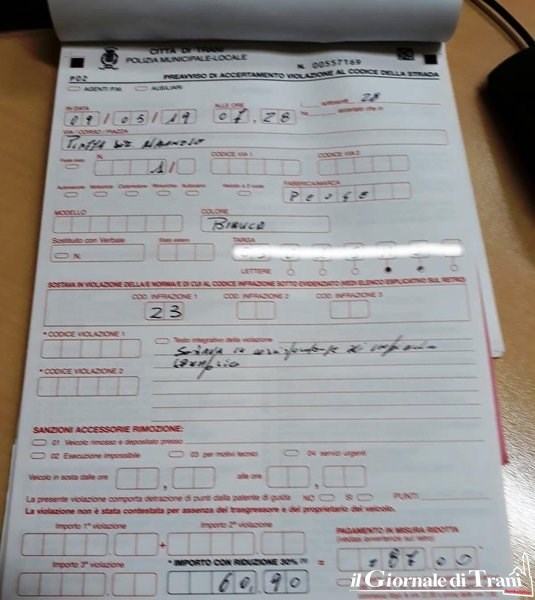 CITTÀ DI TRANI
POLIZIA MUNICIPALE-LOCALE
N. 00557169
P02 PREAVVISO DI ACCERTAMENTO VIOLAZIONE AL CODICE DELLA STRADA
AGENTI P.M. AUSILIARI
IN DATA ALLE ORE 28
09/05/19 07,28
VIA / CORSO / PIAZZA
N. CODICE VIA 1 CODICE VIA 2
1/
FABBRICA/MARCA
MODELLO COLORE
BIANCO
Sostituito con Verbale TARGA
N.
LETTERE
SOSTAVA IN VIOLAZIONE DELLA/E NORMA/E DI CUI AL CODICE INFRAZIONE SOTTO EVIDENZIATO (VEDI ELENCO ESPLICATIVO SUL RETRO)
COD. INFRAZIONE 1 COD. INFRAZIONE 2 COD. INFRAZIONE 3
23
* CODICE VIOLAZIONE 1 Testo integrativo della violazione
* CODICE VIOLAZIONE 2
SANZIONI ACCESSORIE RIMOZIONE:
01 Veicolo rimosso e depositato presso
02 Esecuzione impossibile 03 per motivi tecnici 04 servizi urgenti
Veicolo in sosta dalle ore , alle ore ,
La presente violazione comporta detrazione di punti dalla patente di guida NO SI PUNTI
La violazione non è stata contestata per assenza del trasgressore e del proprietario del veicolo.
Importo 1ª violazione Importo 2ª violazione PAGAMENTO IN MISURA RIDOTTA
+ (vedasi avvertenze sul retro)
Importo 3ª violazione * IMPORTO CON RIDUZIONE 30% = 87,00
60,90
il Giornale di Trani